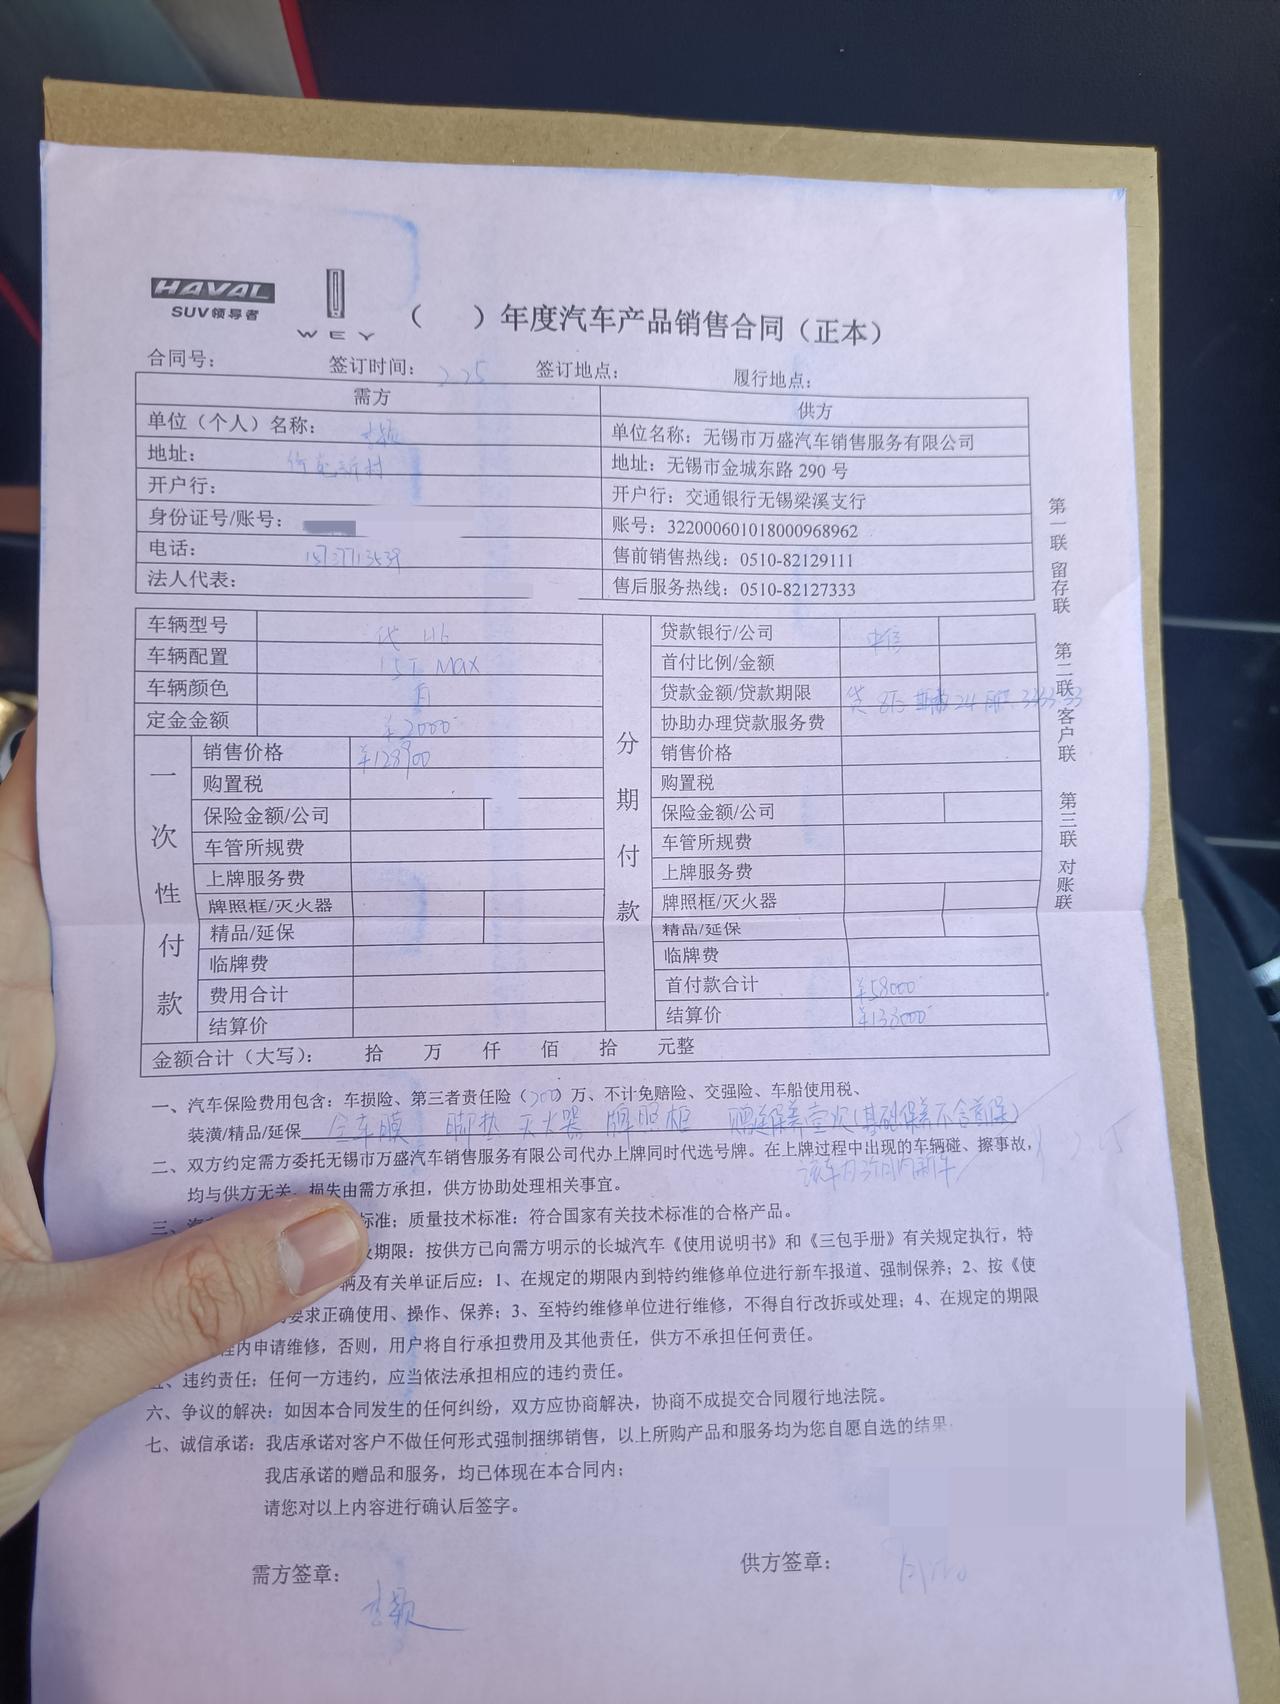 HAVAL
SUV领导者
WEY
（ ）年度汽车产品销售合同（正本）
合同号： 签订时间：2.25 签订地点： 履行地点：
需方 供方
单位（个人）名称： 单位名称：无锡市万盛汽车销售服务有限公司
地址： 新村 地址：无锡市金城东路290号
开户行： 开户行：交通银行无锡梁溪支行
身份证号/账号： 账号：322000601018000968962
电话： 售前销售热线：0510-82129111
法人代表： 售后服务热线：0510-82127333
车辆型号 H6 贷款银行/公司 中信
车辆配置 1.5T Max 首付比例/金额
车辆颜色 白 贷款金额/贷款期限 贷 8万 24 3433.33
定金金额 ¥2000 协助办理贷款服务费
一次性付款
分期付款
销售价格 ¥128900 销售价格
购置税 购置税
保险金额/公司 保险金额/公司
车管所规费 车管所规费
上牌服务费 上牌服务费
牌照框/灭火器 牌照框/灭火器
精品/延保 精品/延保
临牌费 临牌费
费用合计 首付款合计 ¥58000
结算价 结算价 ¥138000
金额合计（大写）： 拾 万 仟 佰 拾 元整
第一联 留存联 第二联 客户联 第三联 对账联
一、汽车保险费用包含：车损险、第三者责任险（200）万、不计免赔险、交强险、车船使用税、
装潢/精品/延保 全车膜 脚垫 灭火器 牌照框 赠送保养壹次（基础保养不含首保）
二、双方约定需方委托无锡市万盛汽车销售服务有限公司代办上牌同时代选号牌。在上牌过程中出现的车辆碰、擦事故，
该车为 新车 2.25
均与供方无关，损失由需方承担，供方协助处理相关事宜。
三、 标准；质量技术标准：符合国家有关技术标准的合格产品。
期限：按供方已向需方明示的长城汽车《使用说明书》和《三包手册》有关规定执行，特
辆及有关单证后应：1、在规定的期限内到特约维修单位进行新车报道、强制保养；2、按《使
要求正确使用、操作、保养；3、至特约维修单位进行维修，不得自行改拆或处理；4、在规定的期限
程内申请维修，否则，用户将自行承担费用及其他责任，供方不承担任何责任。
五、违约责任：任何一方违约，应当依法承担相应的违约责任。
六、争议的解决：如因本合同发生的任何纠纷，双方应协商解决，协商不成提交合同履行地法院。
七、诚信承诺：我店承诺对客户不做任何形式强制捆绑销售，以上所购产品和服务均为您自愿自选的结果；
我店承诺的赠品和服务，均已体现在本合同内；
请您对以上内容进行确认后签字。
需方签章： 供方签章：